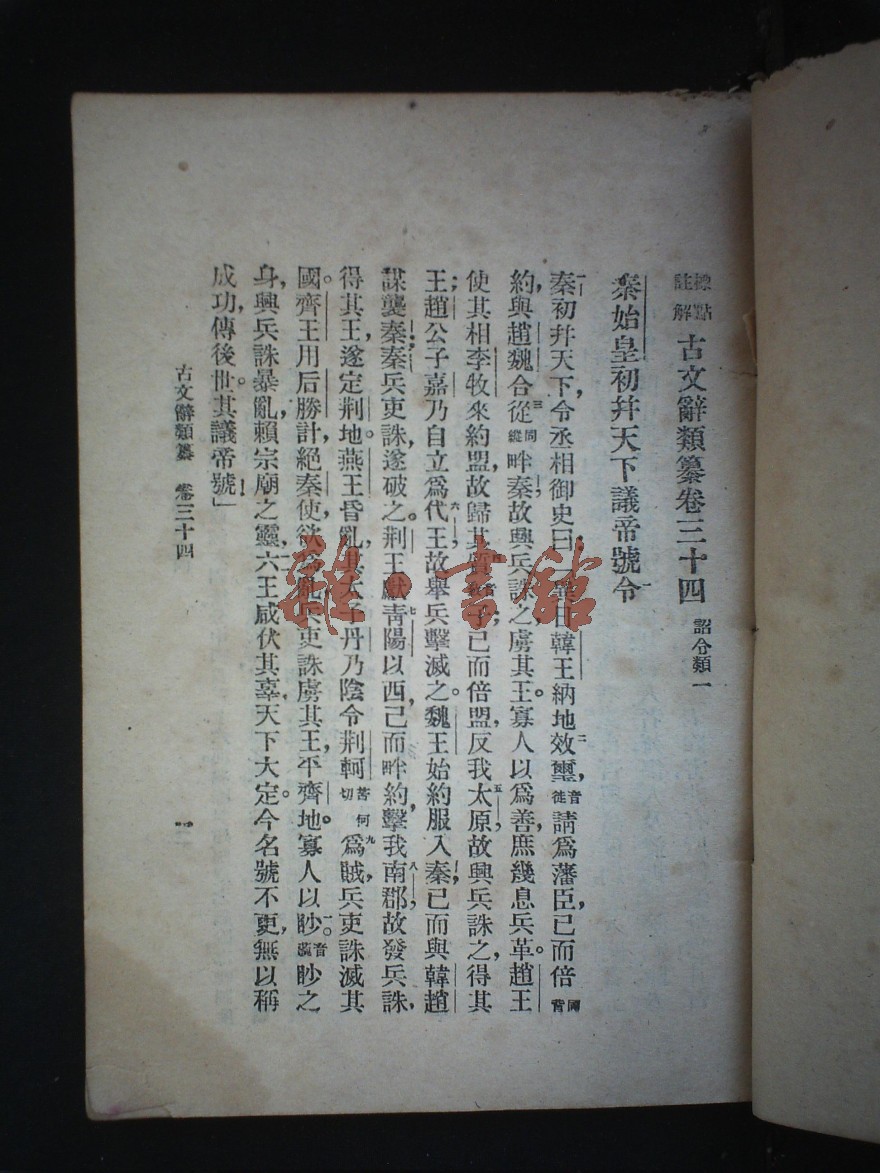 標點註解 古文辭類纂卷三十四 詔令類一
秦始皇初幷天下議帝號令
秦初幷天下,令丞相御史曰「異日韓王納地效璽,音徙 請爲藩臣,已而倍同背
約,與趙魏合從同縱 畔秦,故興兵誅之,虜其王。寡人以爲善,庶幾息兵革。趙王
使其相李牧來約盟,故歸其質音致子;已而倍盟,反我太原,故興兵誅之,得其
王;趙公子嘉乃自立爲代王,故舉兵擊滅之。魏王始約服入秦,已而與韓趙
謀襲秦,秦兵吏誅,遂破之。荆王獻青陽以西,已而畔約,擊我南郡,故發兵誅,
得其王,遂定荆地。燕王昏亂,其太子丹乃陰令荆軻苦何切 爲賊,兵吏誅滅其
國。齊王用后勝計,絕秦使,欲爲亂,兵吏誅虜其王,平齊地。寡人以眇音藐眇之
身,興兵誅暴亂,賴宗廟之靈,六王咸伏其辜,天下大定。今名號不更,無以稱
成功,傳後世。其議帝號!」
古文辭類纂 卷三十四
一
雜·書館